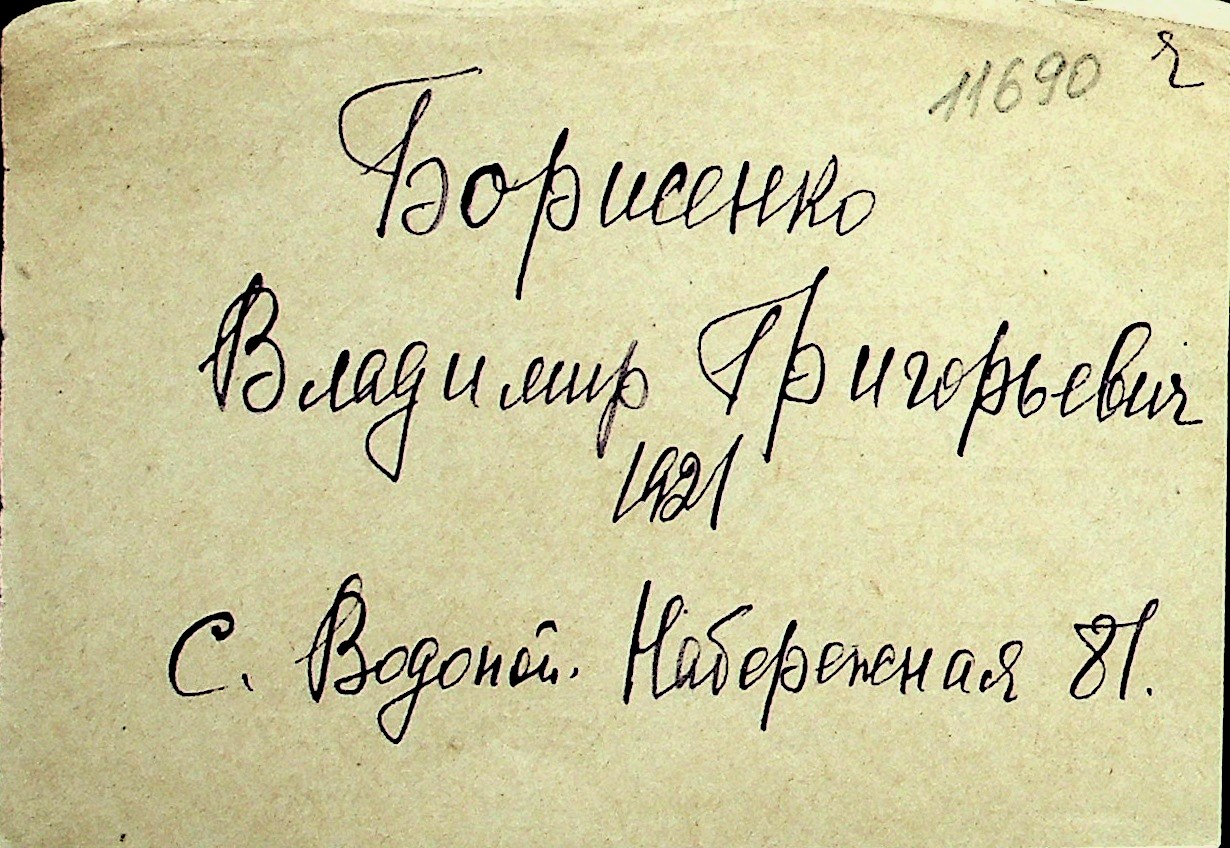 11690 ч
Борисенко
Владимир Григорьевич
1921
С. Водопой. Набережная 81.